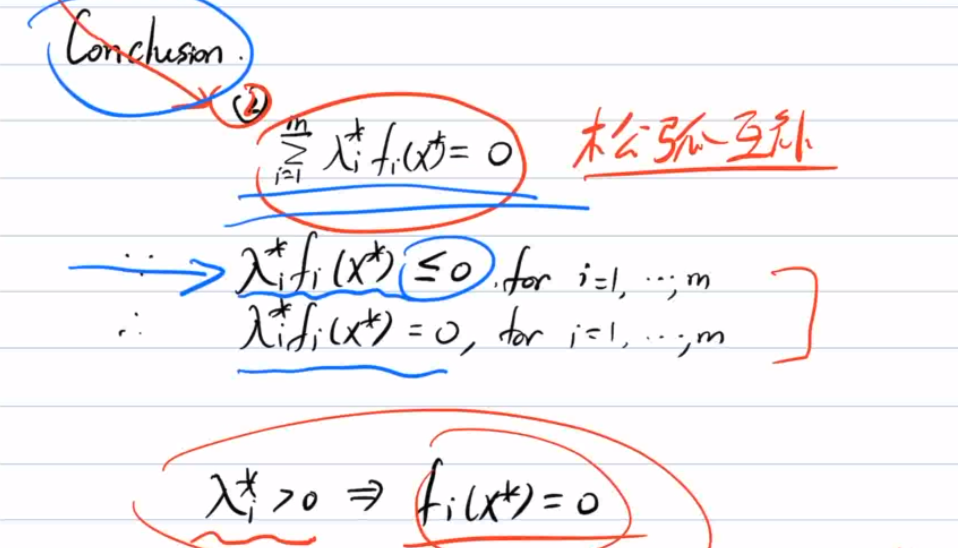 Conclusion.
②
$\sum_{i=1}^{m} \lambda_i^* f_i(x^*) = 0$ 松弛互补
∵ $\lambda_i^* f_i(x^*) \leq 0$. for i=1, ..., m
∴ $\lambda_i^* f_i(x^*) = 0$, for i=1, ..., m
$\lambda_i^* > 0 \Rightarrow f_i(x^*) = 0$